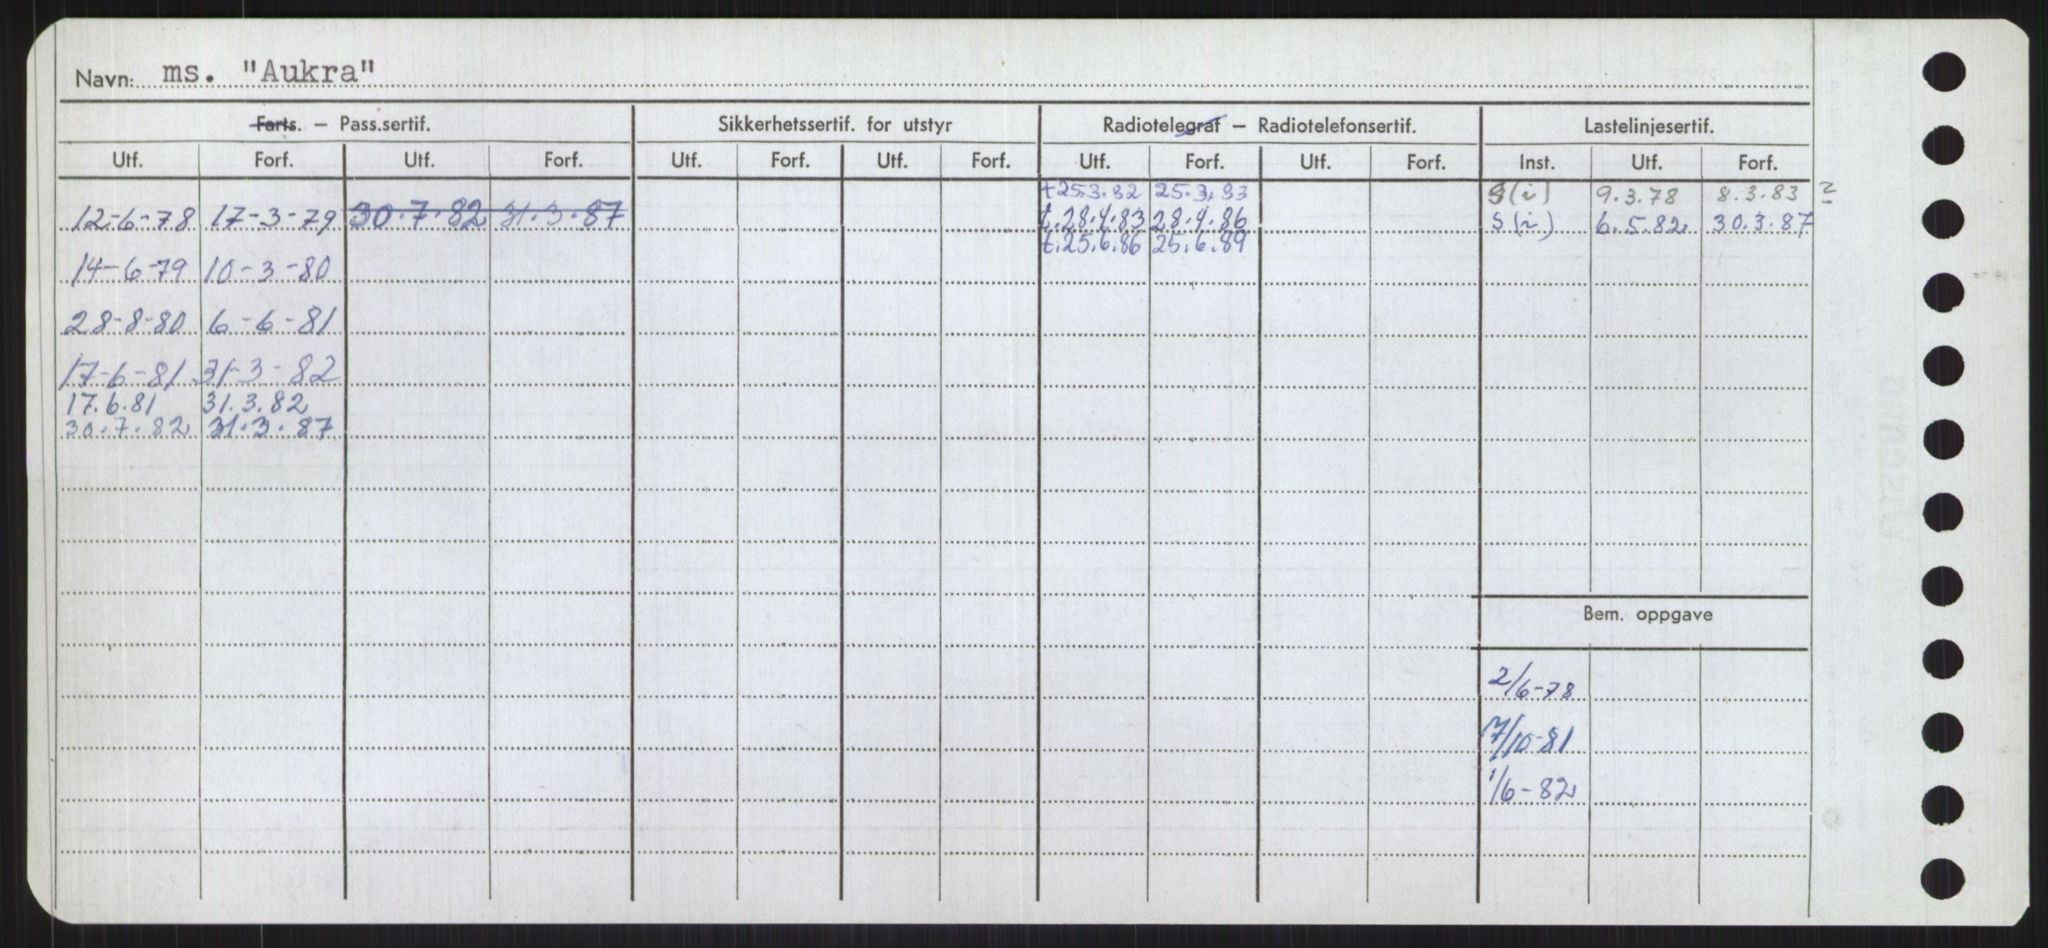 Navn: ms. "Aukra"
Farts. — Pass.sertif. Sikkerhetssertif. for utstyr Radiotelegraf — Radiotelefonsertif. Lastelinjesertif.
Utf. Forf. Utf. Forf. Utf. Forf. Utf. Forf. Utf. Forf. Utf. Forf. Inst. Utf. Forf.
t 25.3.82 25.3.83 S(i) 9.3.78 8.3.83 2
12-6-78 17-3-79 30.7.82 31.3.87 t.28.4.83 28.4.86 S(i) 6.5.82. 30.3.87
t.25.6.86 25.6.89
14-6-79 10-3-80
28-8-80 6-6-81
17-6-81 31-3-82
17.6.81 31.3.82
30.7.82 31.3.87
Bem. oppgave
2/6-78
7/10-81
1/6-82